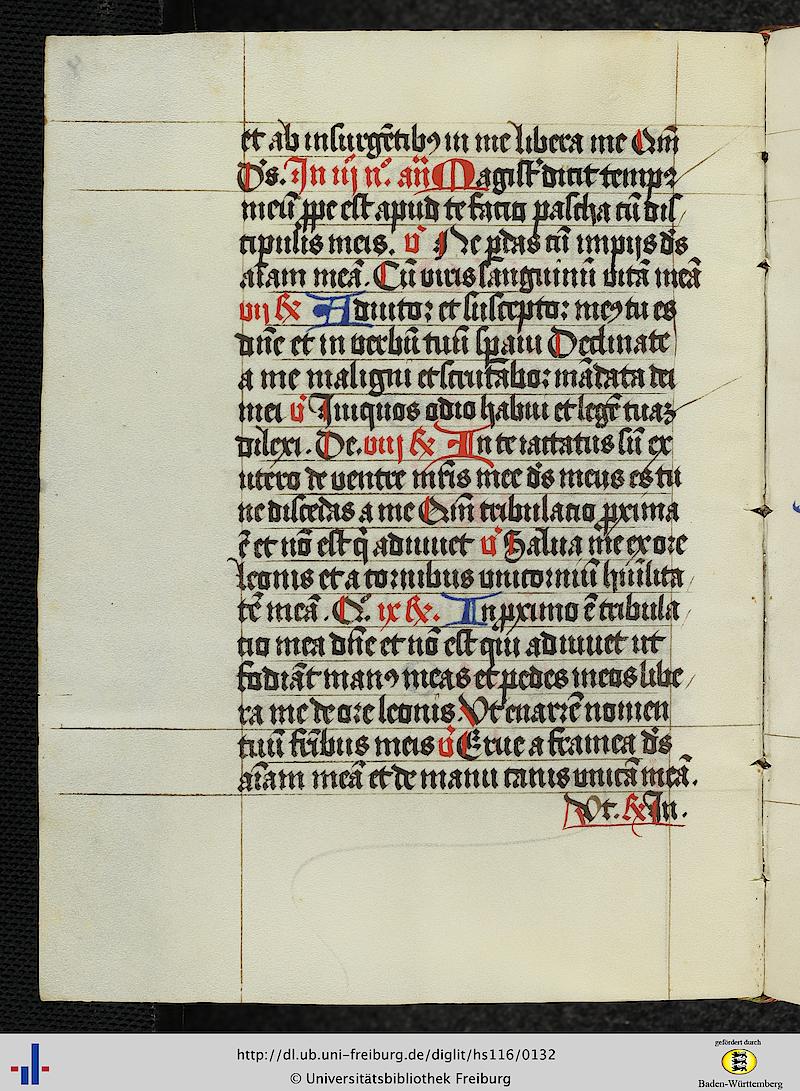 et ab insurgētibꝯ in me libera me Qm̄
D's. In iij n°. an̄ Magist' dicit tempꝰ
meū ꝓpe est apud te facio pascha cū dis
cipulis meis. v̄ Ne p̲das cū impijs ds̄
aīam meā. Cū viris sanguinū vitā meā
viij ℞ Adiutor et susceptor meꝯ tu es
dn̄e et in verbū tuū spaui Declinate
a me maligni et scrutabor mādata dei
mei v̄ Iniquos odio habui et legē tuaꝫ
dilexi. De. viij ℞ In te iactatus sū ex
utero de ventre mr̄is mee ds̄ meus es tu
ne discedas a me Qm̄ tribulatio ꝓxima
ē et nō est q̄ adiuuet v̄ Salua me ex ore
leonis et a cornibus vnicorniū hūilita
tē meā. Q°. ix ℞. In ꝓximo ē tribula
tio mea dn̄e et nō est qui adiuuet ut
fodiāt manꝯ meas et pedes meos libe
ra me de ore leonis. Vt enarrē nomen
tuū fr̄ibus meis v̄ Erue a framea ds̄
aīam meā et de manu canis vnicā meā.
Vt. ℞ In.
http://dl.ub.uni-freiburg.de/diglit/hs116/0132
© Universitätsbibliothek Freiburg
gefördert durch
Baden-Württemberg